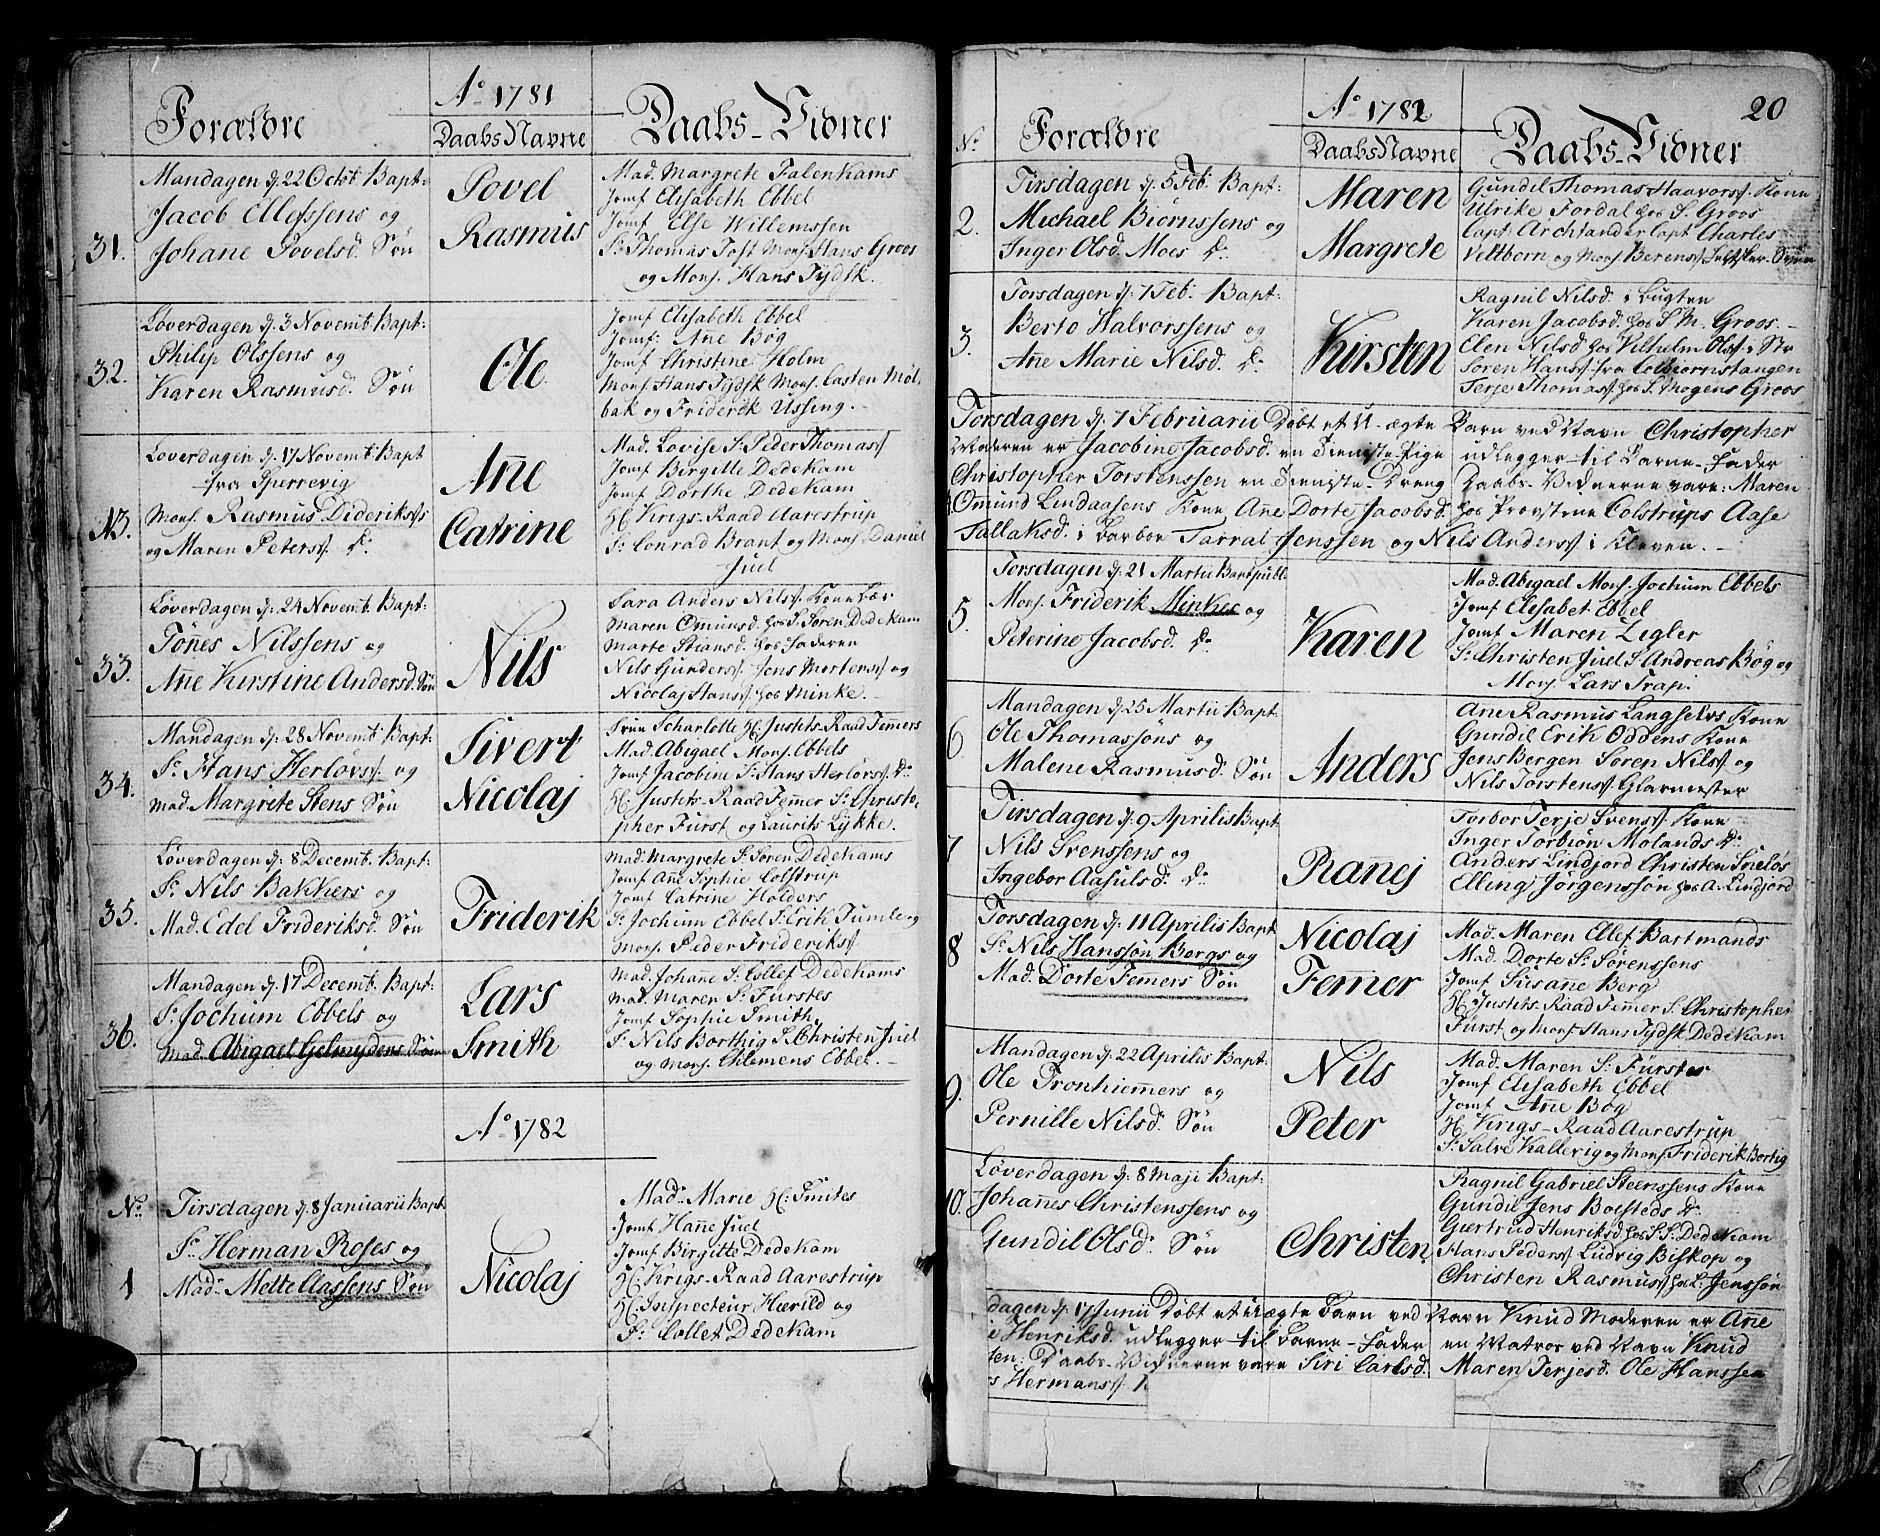 Forældre
Ao 1781
Daabs Navne
Daabs-Vidner
31.
Mandagen d. 22 Octob. Bapt:
Jacob Ellefssens og
Johane Povelsd. Søn
Povel
Rasmus
Mad. Margrete Falenkams
Jomf Elisabeth Ebbel
Jomf Else Willemssen
Sr. Thomas Tost Mons. Hans Groos
og Mons. Hans Tydsk.
32.
Løverdagen d. 3 Novemb. Bapt:
Philip Olssens og
Karen Rasmusd. Søn
Ole
Jomf Elisabeth Ebbel
Jomf: Ane Bøg
Jomf Christine Holm
Mons. Hans Tydsk Mons. Casten Møl,
bak og Friderik Ussing.
Løverdagen d. 17 Novemb. Bapt
fra Sperrevig
Mons. Rasmus Dideriks
og Maren Peters Dr.
Añe
Catrine
Mad. Lovise Sr. Peder Thomas
Jomf Birgitte Dedekam
Jomf Dorthe Dedekam
H. Krigs-Raad Aarestrup
Sr. Conrad Brant og Mons. Daniel
Juel
33.
Løverdagen d. 24 Novemb. Bapt:
Tönes Nilssens og
Añe Kirstine Andersd. Søn
Nils
Sara Anders Nils. Kone
Maren Omunsd. hos S. Søren Dedekam
Marte Stiansd. hos Faderen
Nils Gunders. Jens Mortens og
Nicolaj Hans. hos Minke.
34.
Mandagen d. 28 Novemb. Bapt:
Sr. Hans Herlovs. og
Mad. Margrete Stens Søn
Sivert
Nicolaj
Frue Scharlotte H. Justits-Raad Femers
Mad. Abigael Mons. Ebbels
Jomf Jacobine Sr. Hans Herlovs. Dr.
H. Justits-Raad Femer Sr. Christo,
pher Furst og Laurits Lykke.
35.
Løverdagen d. 8 Decemb. Bapt:
Sr. Nils Bakkers og
Mad. Edel Frideriksd. Søn
Friderik
Mad. Margrete Sr. Søren Dedekams
Jomf Ane Sophie Colstrup
Jomf Catrine Holders
Sr. Jochum Ebbel Sr. Erik Tumle og
Mons. Peder Frideriks
36.
Mandagen d. 17 Decemb. Bapt:
Sr. Jochum Ebbels og
Mad. Abigael Gelmydens Søn
Lars
Smith
Mad. Johañe Sr. Collef Dedekams
Mad. Maren Sr. Furstes
Jomf Sophie Smith.
Sr. Nils Borthig S. Christen Juel
og Mons. Chlemens Ebbel.
Ao 1782
No.
1
Tirsdagen d. 8 Januarii Bapt
Sr. Herman Roses og
Mad. Mette Aassens Søn
Nicolaj
Mad. Marie H. Smites
Jomf Hañe Juel
Jomf Birgitte Dedekam
H. Krigs-Raad Aarestrup
H. Inspecteur Hærild og
Sr. Collet Dedekam
20
No.
Forældre
Ao 1782
Daabs Navne
Daabs-Vidner
2.
Tirsdagen d. 5 Feb. Bapt:
Michael Biørnssens og
Inger Olsd. Moes Dr.
Maren
Margrete
Gundil Thomas Haavors. Kone
Ulrike Fordal hos S. Groos
Capt: Archtander Capt Charles
Veltborn og Mons. Berens
3.
Torsdagen d. 7 Feb. Bapt:
Berto Halvorssens og
Ane Marie Nilsd. Dr.
Kirsten
Ragnil Nilsd. i Bugten
Karen Jacobsd. hos S. M. Groos.
Elen Nilsd hos Vilhelm Ols
Søren Hans. fra Colbiørnstangen
Terje Thomas. hos S. Mogens Groos
Torsdagen d. 7 Februarii Døbt et U-ægte Barn ved Navn Christopher
Moderen er Jacobine Jacobsd. en Tieniste-Pige udlegger til Barne-Fader
Christopher Torstenssen en Tieniste-Dreng Daabs-Vidnerne vare: Maren
Omund Lindaasens Kone Ane Dorte Jacobsd. hos Provstene Colstrups Aase
Tallaksd. i Barboe Tarral Jenssen og Nils Anders i Kleven.
5.
Torsdagen d. 21 Martii Bapt publ
Mons. Friderik Minkes og
Peterine Jacobsd. Dr.
Karen
Mad. Abigael Mons. Jochum Ebbels
Jomf Elisabet Ebbel
Jomf Maren Zegler
Sr. Christen Juel S. Andreas Bøg og
Mons. Lars Trap.
6
Mandagen d. 25 Martii Bapt:
Ole Thomassøns og
Malene Rasmusd. Søn
Anders
Ane Rasmus Langselvs Kone
Gundil Erik Oddens Kone
Jens Bergen Søren Nils og
Nils Torstens Glarmester
7
Tirsdagen d. 9 Aprilis Bapt:
Nils Svenssens og
Ingebor Aasulsd. Dr.
Ranej
Torbor Terje Svens. Kone
Inger Torbiøn Molands Dr.
Anders Lindjord Christen Sneløs
Elling Jørgenssøn hos A. Lindjord
8
Torsdagen d. 11 Aprilis Bapt
Sr. Nils Hanssøn Bergs og
Mad. Dorte Femers Søn
Nicolaj
Femer
Mad. Maren Ellef Bartmands
Mad. Dorte Sr. Sørenssens
Jomf Susane Berg
H. Justits-Raad Femer S. Christopher
Furst og Mons. Hans Tydsk Dedekam
9.
Mandagen d. 22 Aprilis Bapt:
Ole Tronhiemers og
Pernille Nilsd. Søn
Nils
Peter
Mad. Maren Sr. Fürstes
Jomf Elisabeth Ebbel
Jomf Añe Bøg
H. Krigs-Raad Aarestrup
Sr. Salve Kallevig og Mons. Friderik Bortig
10.
Løverdagen d. 8 Maji Bapt:
Johañes Christenssens og
Gundil Olsd. Søn
Christen
Ragnil Gabriel Steenssens Kone
Gundil Jens Bolsteds Dr.
Giertrud Henriksd. hos S. S. Dedekam
Hans Peders. Ludvig Biskop og
Christen Rasmus hos L. Jenssøn
dagen d. 17 Junii Døbt et uægte Barn ved Navn Knud Moderen er Añe
Henriksd. udlegger til Barne-Fader en Matros ved Navn Knud
Daabs-Vidnerne vare Siri Carlsd. Maren Terjesd. Ole Hanssen
Hermans